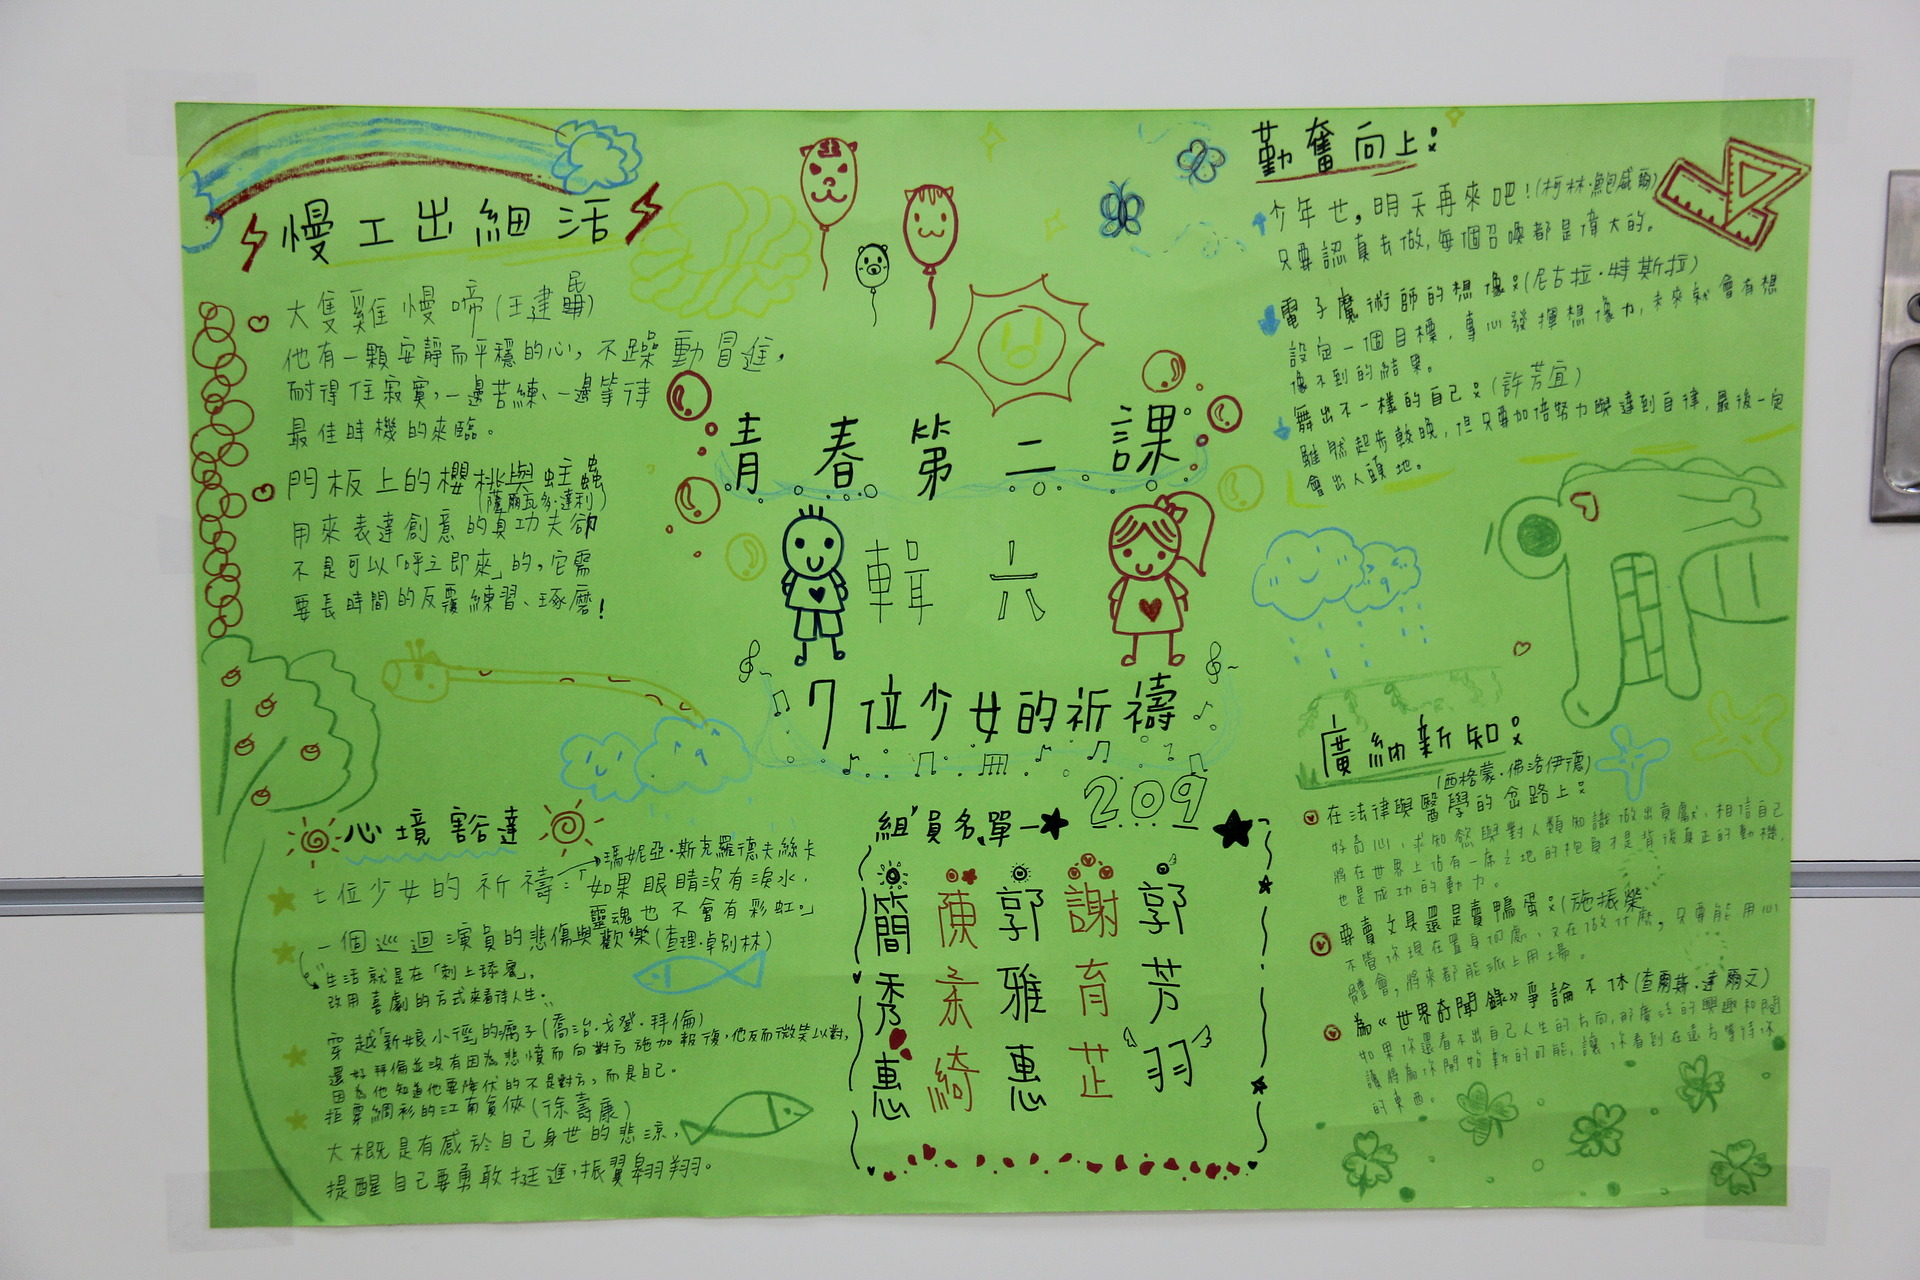 慢工出細活
大隻雞慢啼(王建民)
他有一顆安靜而平穩的心,不躁動冒進,
耐得住寂寞,一邊苦練、一邊等待
最佳時機的來臨。
門板上的櫻桃與蛀蟲
(薩爾瓦多·達利)
用來表達創意的真功夫欲
不是可以「呼之即來」的,它需
要長時間的反覆練習、琢磨!
心境豁達
七位少女的祈禱:
瑪妮亞·斯克羅德夫絲卡
「如果眼睛沒有淚水,
靈魂也不會有彩虹。」
一個巡迴演員的悲傷與歡樂(查理·卓別林)
生活就是在「刺上舔蜜」,
改用喜劇的方式來看待人生。
穿越「新娘小徑」的瘸子(喬治·戈登·拜倫)
還好拜倫並沒有因為悲憤而向對方施加報復,他反而微笑以對,
因為他知道他要降伏的不是對方,而是自己。
拒穿綢衫的江南貧俠(徐壽康)
大概是有感於自己身世的悲涼,
提醒自己要勇敢挺進,振翼翱翔。
青春第二課
輯六
7位少女的祈禱
209
組員名單
簡秀惠
陳柔綺
郭雅惠
謝育芷
郭芳羽
勤奮向上:
少年也,明天再來吧!(柯林·鮑威爾)
只要認真去做,每個召喚都是偉大的。
電子魔術師的想像:(尼古拉·特斯拉)
設定一個目標,專心發揮想像力,未來就會有想
像不到的結果。
舞出不一樣的自己:(許芳宜)
雖然起步較晚,但只要加倍努力達到自律,最後一定
會出人頭地。
廣納新知:
(西格蒙·佛洛伊德)
在法律與醫學的岔路上:
好奇心、求知慾與對人類知識做出貢獻,相信自己
將在世界上佔有一席之地的抱負才是背後真正的動機,
也是成功的動力。
要賣文具還是賣鴨蛋:(施振榮
不管你現在置身何處,又在做什麼,只要能用心
體會,將來都能派上用場。
為《世界奇聞錄》爭論不休(查爾斯·達爾文)
如果你還看不出自己人生的方向,那廣泛的興趣和閱
讀將為你開始新的可能,讓你看到在遠方等待你
的東西。